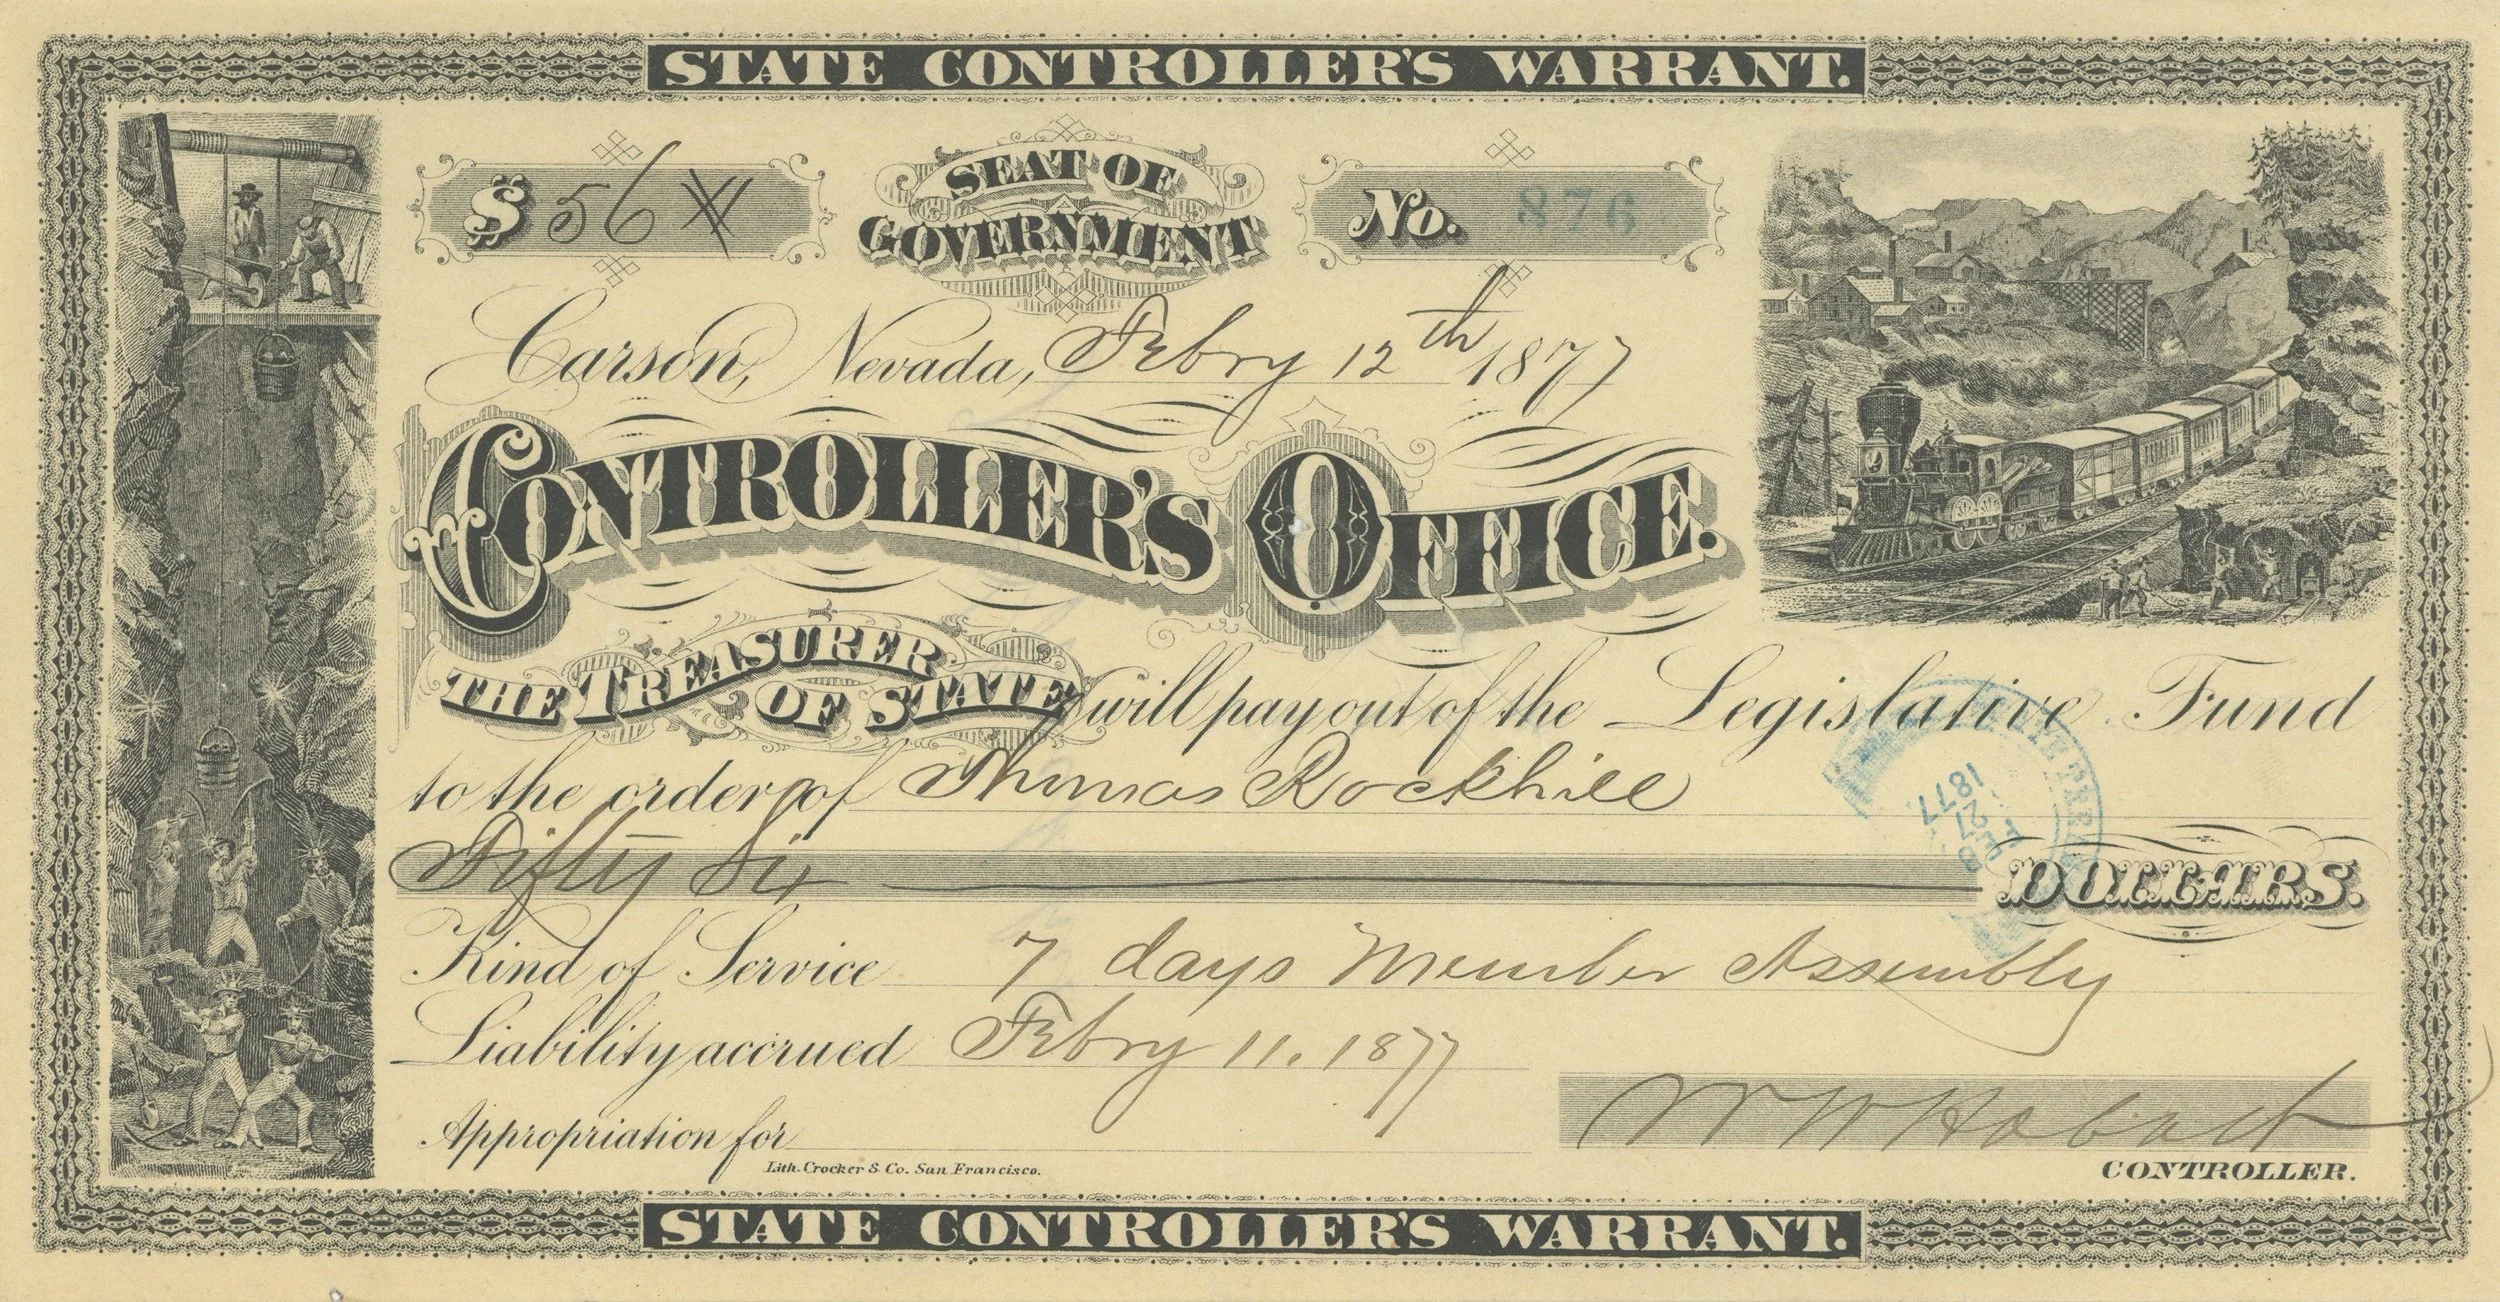 STATE CONTROLLER'S WARRANT.
$ 56
SEAT OF GOVERNMENT
No. 876
Carson, Nevada, Febry 12th 1877
CONTROLLER'S OFFICE.
THE TREASURER OF STATE will pay out of the Legislative Fund
to the order of Thomas Rockhill
Fifty Six DOLLARS.
Kind of Service 7 days Member Assembly
Liability accrued Febry 11. 1877
Appropriation for
W W Hobart
Lith. Crocker & Co. San Francisco.
CONTROLLER.
STATE CONTROLLER'S WARRANT.
FEB
27
1877